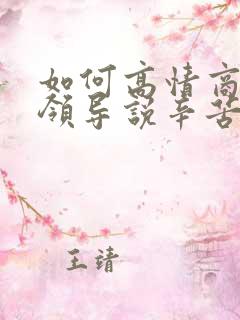 如何高情商
领导说辛苦
王靖